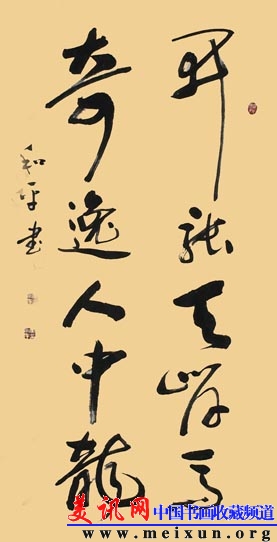 開張天岸馬
奇逸人中龍
和平書
美讯网 中国书画收藏频道
www.meixun.org